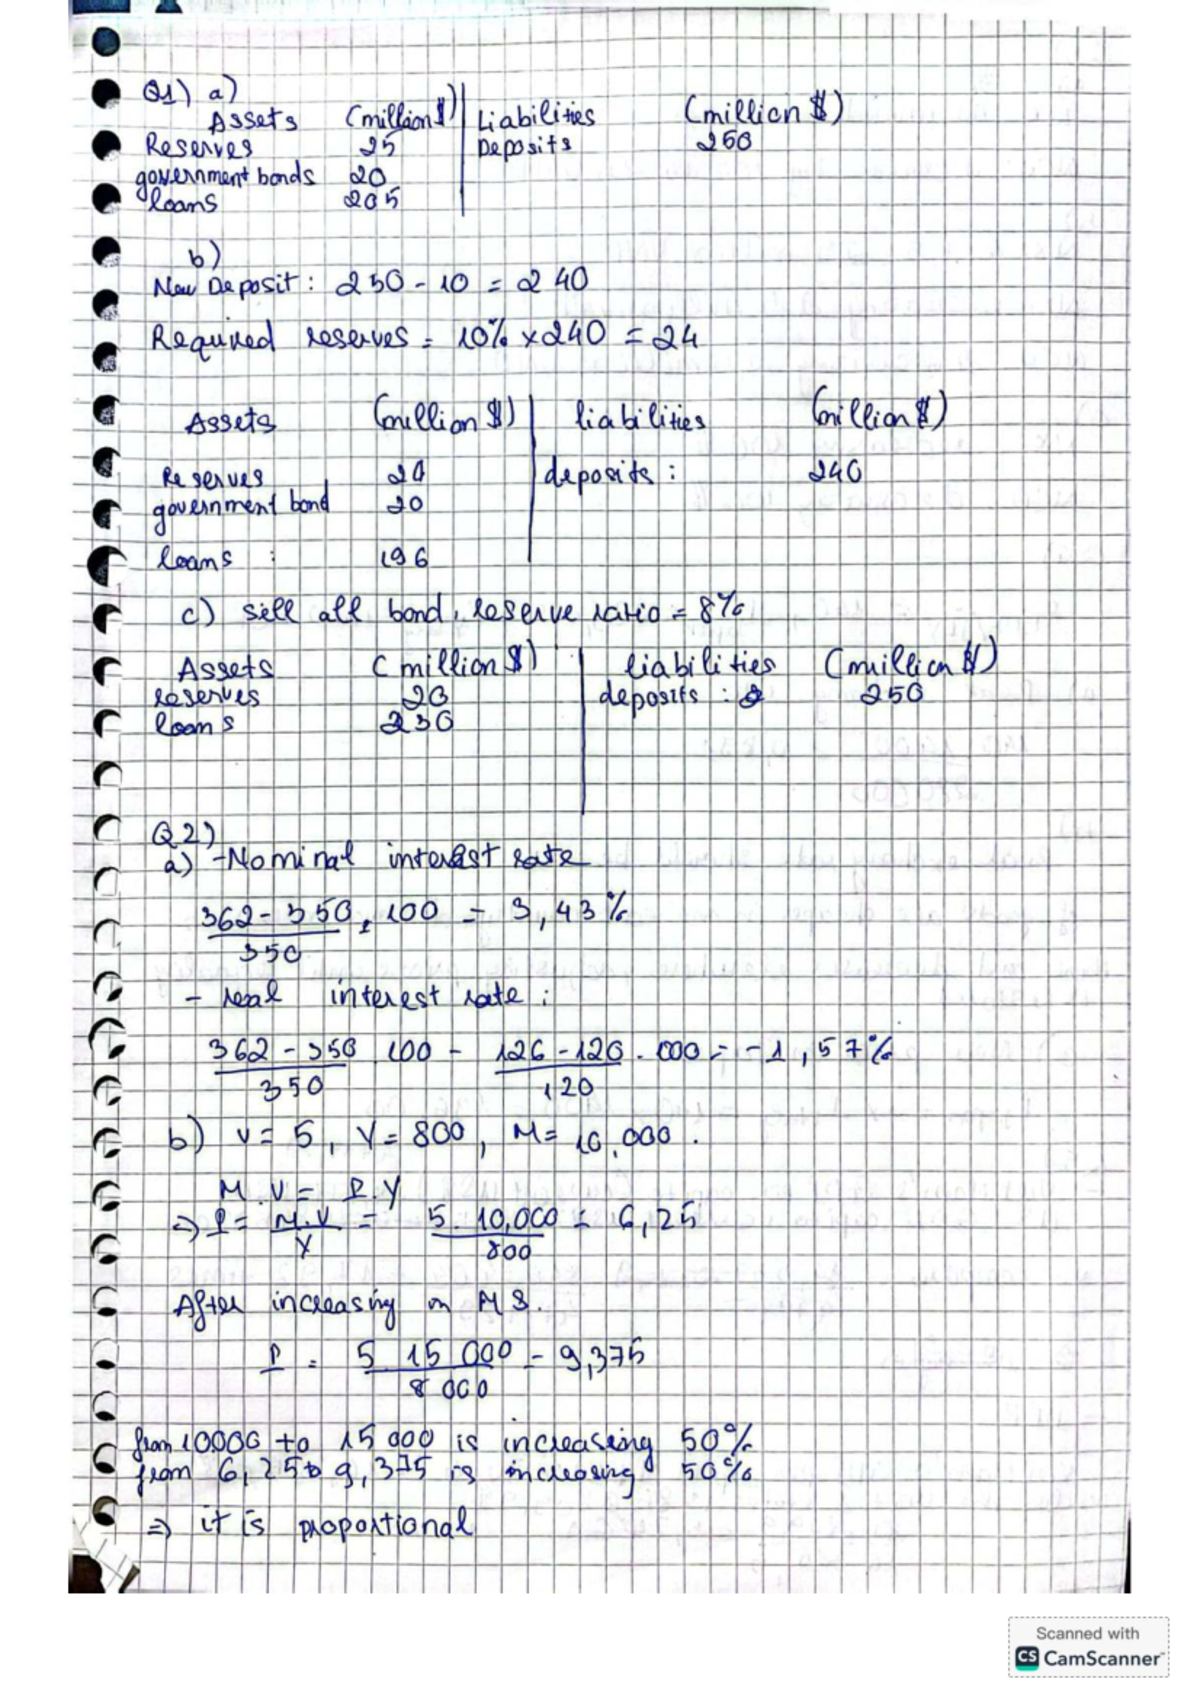 Q1) a)
Assets (million $) Liabilities (million $)
Reserves 25 Deposits 250
government bonds 20
loans 205
b)
New Deposit: 250 - 10 = 240
Required reserves = 10% x 240 = 24
Assets (million $) liabilities (million $)
Reserves 24 deposits : 240
government bond 20
loans : 196
c) sell all bond, reserve ratio = 8%
Assets (million $) liabilities (million $)
reserves 20 deposits : 250
loans 230
Q2)
a) - Nominal interest rate
362 - 350 . 100 = 3,43%
350
- real interest rate :
362 - 350 100 - 126 - 120 . 100 = -1,57%
350 120
b) V = 5, Y = 800, M = 10,000.
M.V = P.Y
=> P = M.V = 5. 10,000 = 6,25
Y 800
After increasing in MS.
P = 5 15 000 = 9,375
8 000
from 10000 to 15 000 is increasing 50%
from 6,25 to 9,375 is increasing 50%
=> it is proportional
Scanned with
CS CamScanner